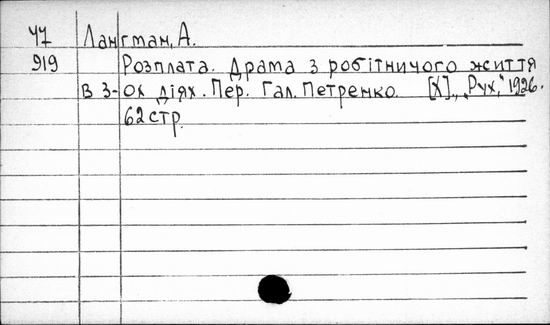 У7 Лангман, А.
919 Розплата. Драма з робітничого життя
в 3-ох діях. Пер. Гал. Петренко. [Х]., „Рух," 1926.
62 стр.